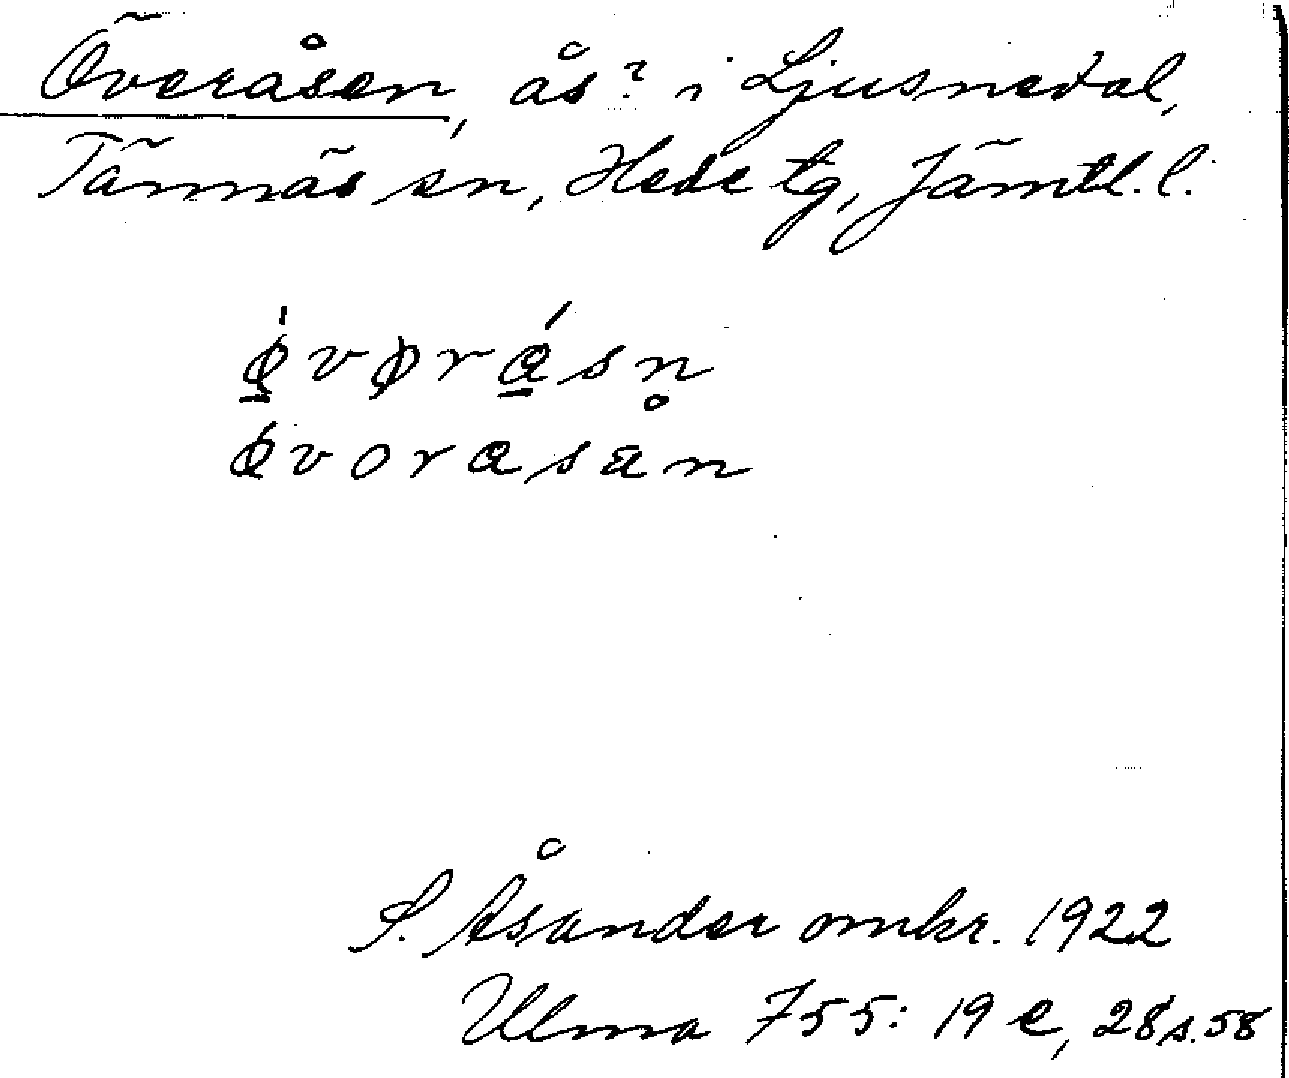 Överåsen, ås? i Ljusnedal,
Tännäs sn, Hede tg, Jämtl. l.
ǿ̱vørɑ̱́sn̥
ǿvorɑsan
S. Åsander omkr. 1922
Ulma 755: 19 e, 28 s. 58